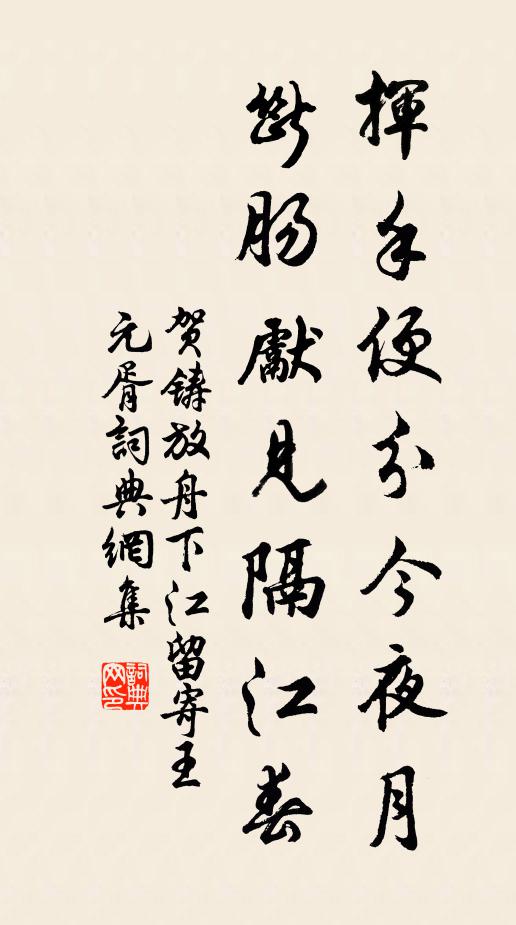 揮手便分今夜月
斷腸獻見隔江春
贺鑄放舟下江留寄王
元胥詞典網集
詞典
网印